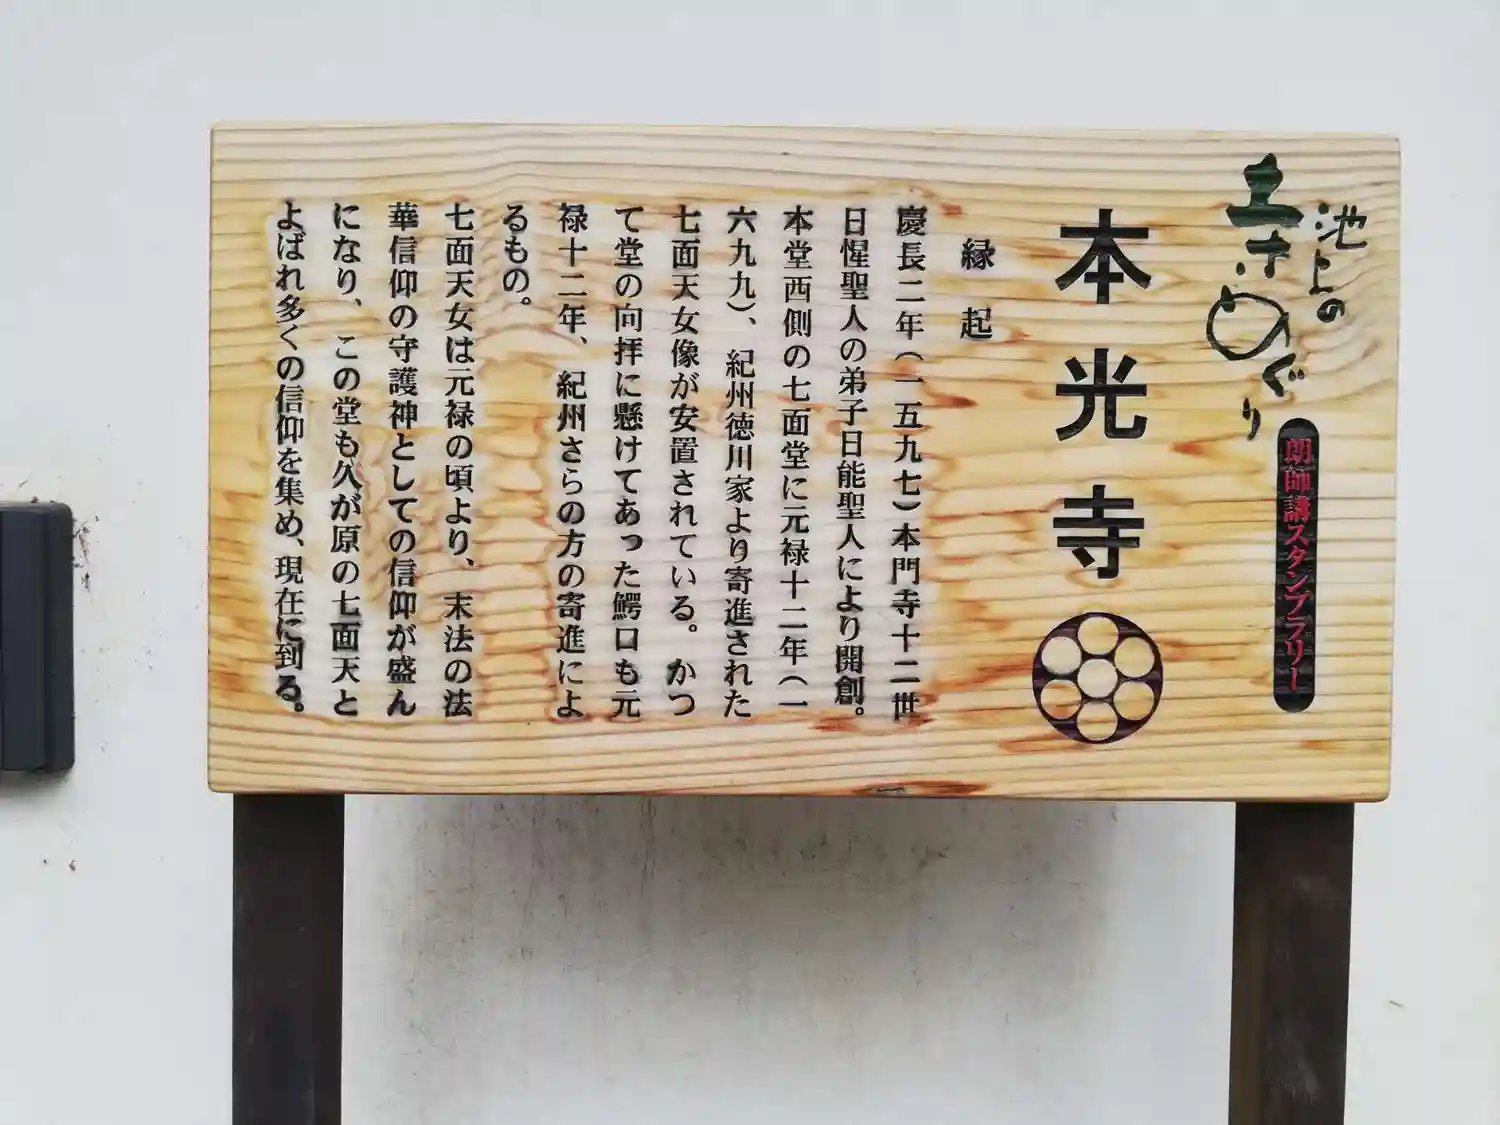 池上の
寺めぐり
朗師講スタンプラリー
本光寺
縁起
慶長二年（一五九七）本門寺十二世
日惺聖人の弟子日能聖人により開創。
本堂西側の七面堂に元禄十二年（一
六九九）、紀州徳川家より寄進された
七面天女像が安置されている。かつ
て堂の向拝に懸けてあった鰐口も元
禄十二年、紀州さらの方の寄進によ
るもの。
七面天女は元禄の頃より、末法の法
華信仰の守護神としての信仰が盛ん
になり、この堂も久が原の七面天と
よばれ多くの信仰を集め、現在に到る。